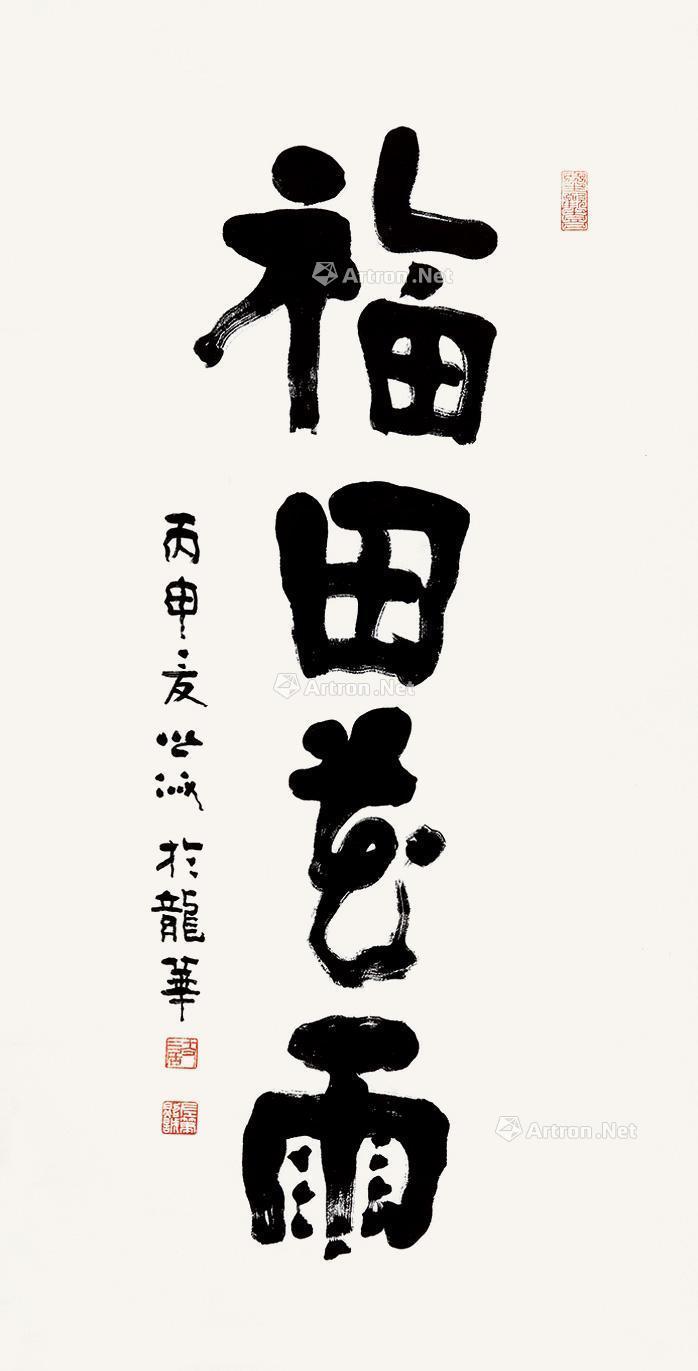 福田花雨
丙申夏 照誠於龍華
Artron.Net
Artron.Net
Artron.Net